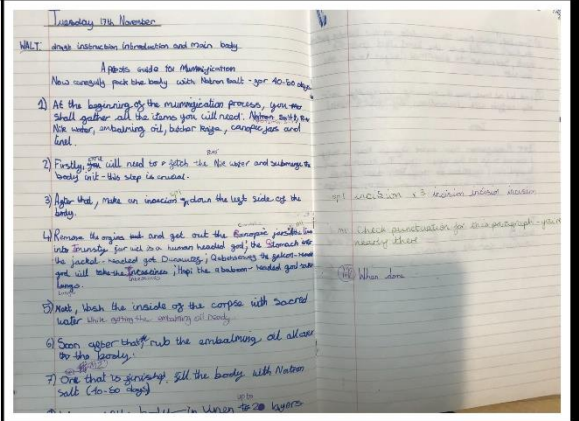 Tuesday 17th November
WALT: draft instruction introduction and main body.
A guide to Mummification
Now carefully pack the body with Natron Salt - for 40-60 days
1) At the beginning of the mummification process, you
shall gather all the items you will need: Natron Salt,
Nile water, embalming oil, canopic jars and
linel.
2) Firstly, you will need to fetch the Nile water and submerge the
body in it - this step is crucial.
3) After that, make an down the left side of the
body.
4) Remove the organs and get out the Canopic jars: the
into jar wel is a human headed god; the Stomach
the jackal - headed god the falcon - headed
god will take the Intestines; Hapi the - headed god
lungs.
5) Next, Wash the inside of the corpse with sacred
water while getting the embalming oil ready.
6) Soon after that, rub the embalming oil all over
the body.
7) One that is finished fill the body with Natron
Salt (40-60 days)
body in linen layers
spt incision x 3 incision incision incision
Check punctuation for this paragraph - you're
nearly there!
When done